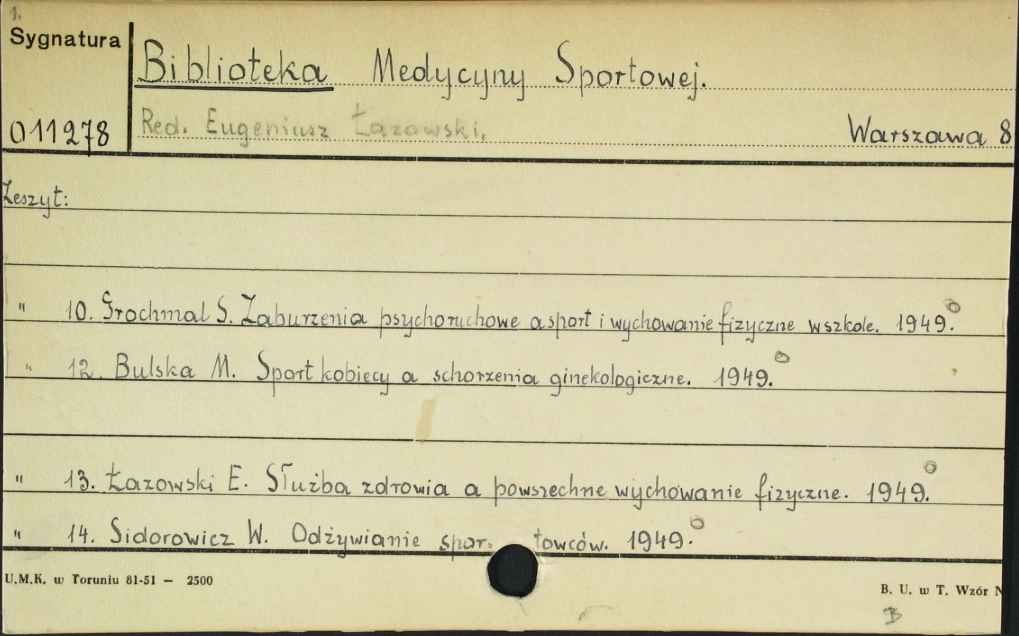 1.
Sygnatura
Biblioteka Medycyny Sportowej.
011278
Red. Eugeniusz Łazowski,
Warszawa 8
Zeszyt:
" 10. Grochmal S. Zaburzenia psychoruchowe a sport i wychowanie fizyczne w szkole. 1949.
" 12. Bulska M. Sport kobiecy a schorzenia ginekologiczne. 1949.
" 13. Łazowski E. Służba zdrowia a powszechne wychowanie fizyczne. 1949.
" 14. Sidorowicz W. Odżywianie spor towców. 1949.
U.M.K. w Toruniu 81-51 — 2500
B. U. w T. Wzór N
B